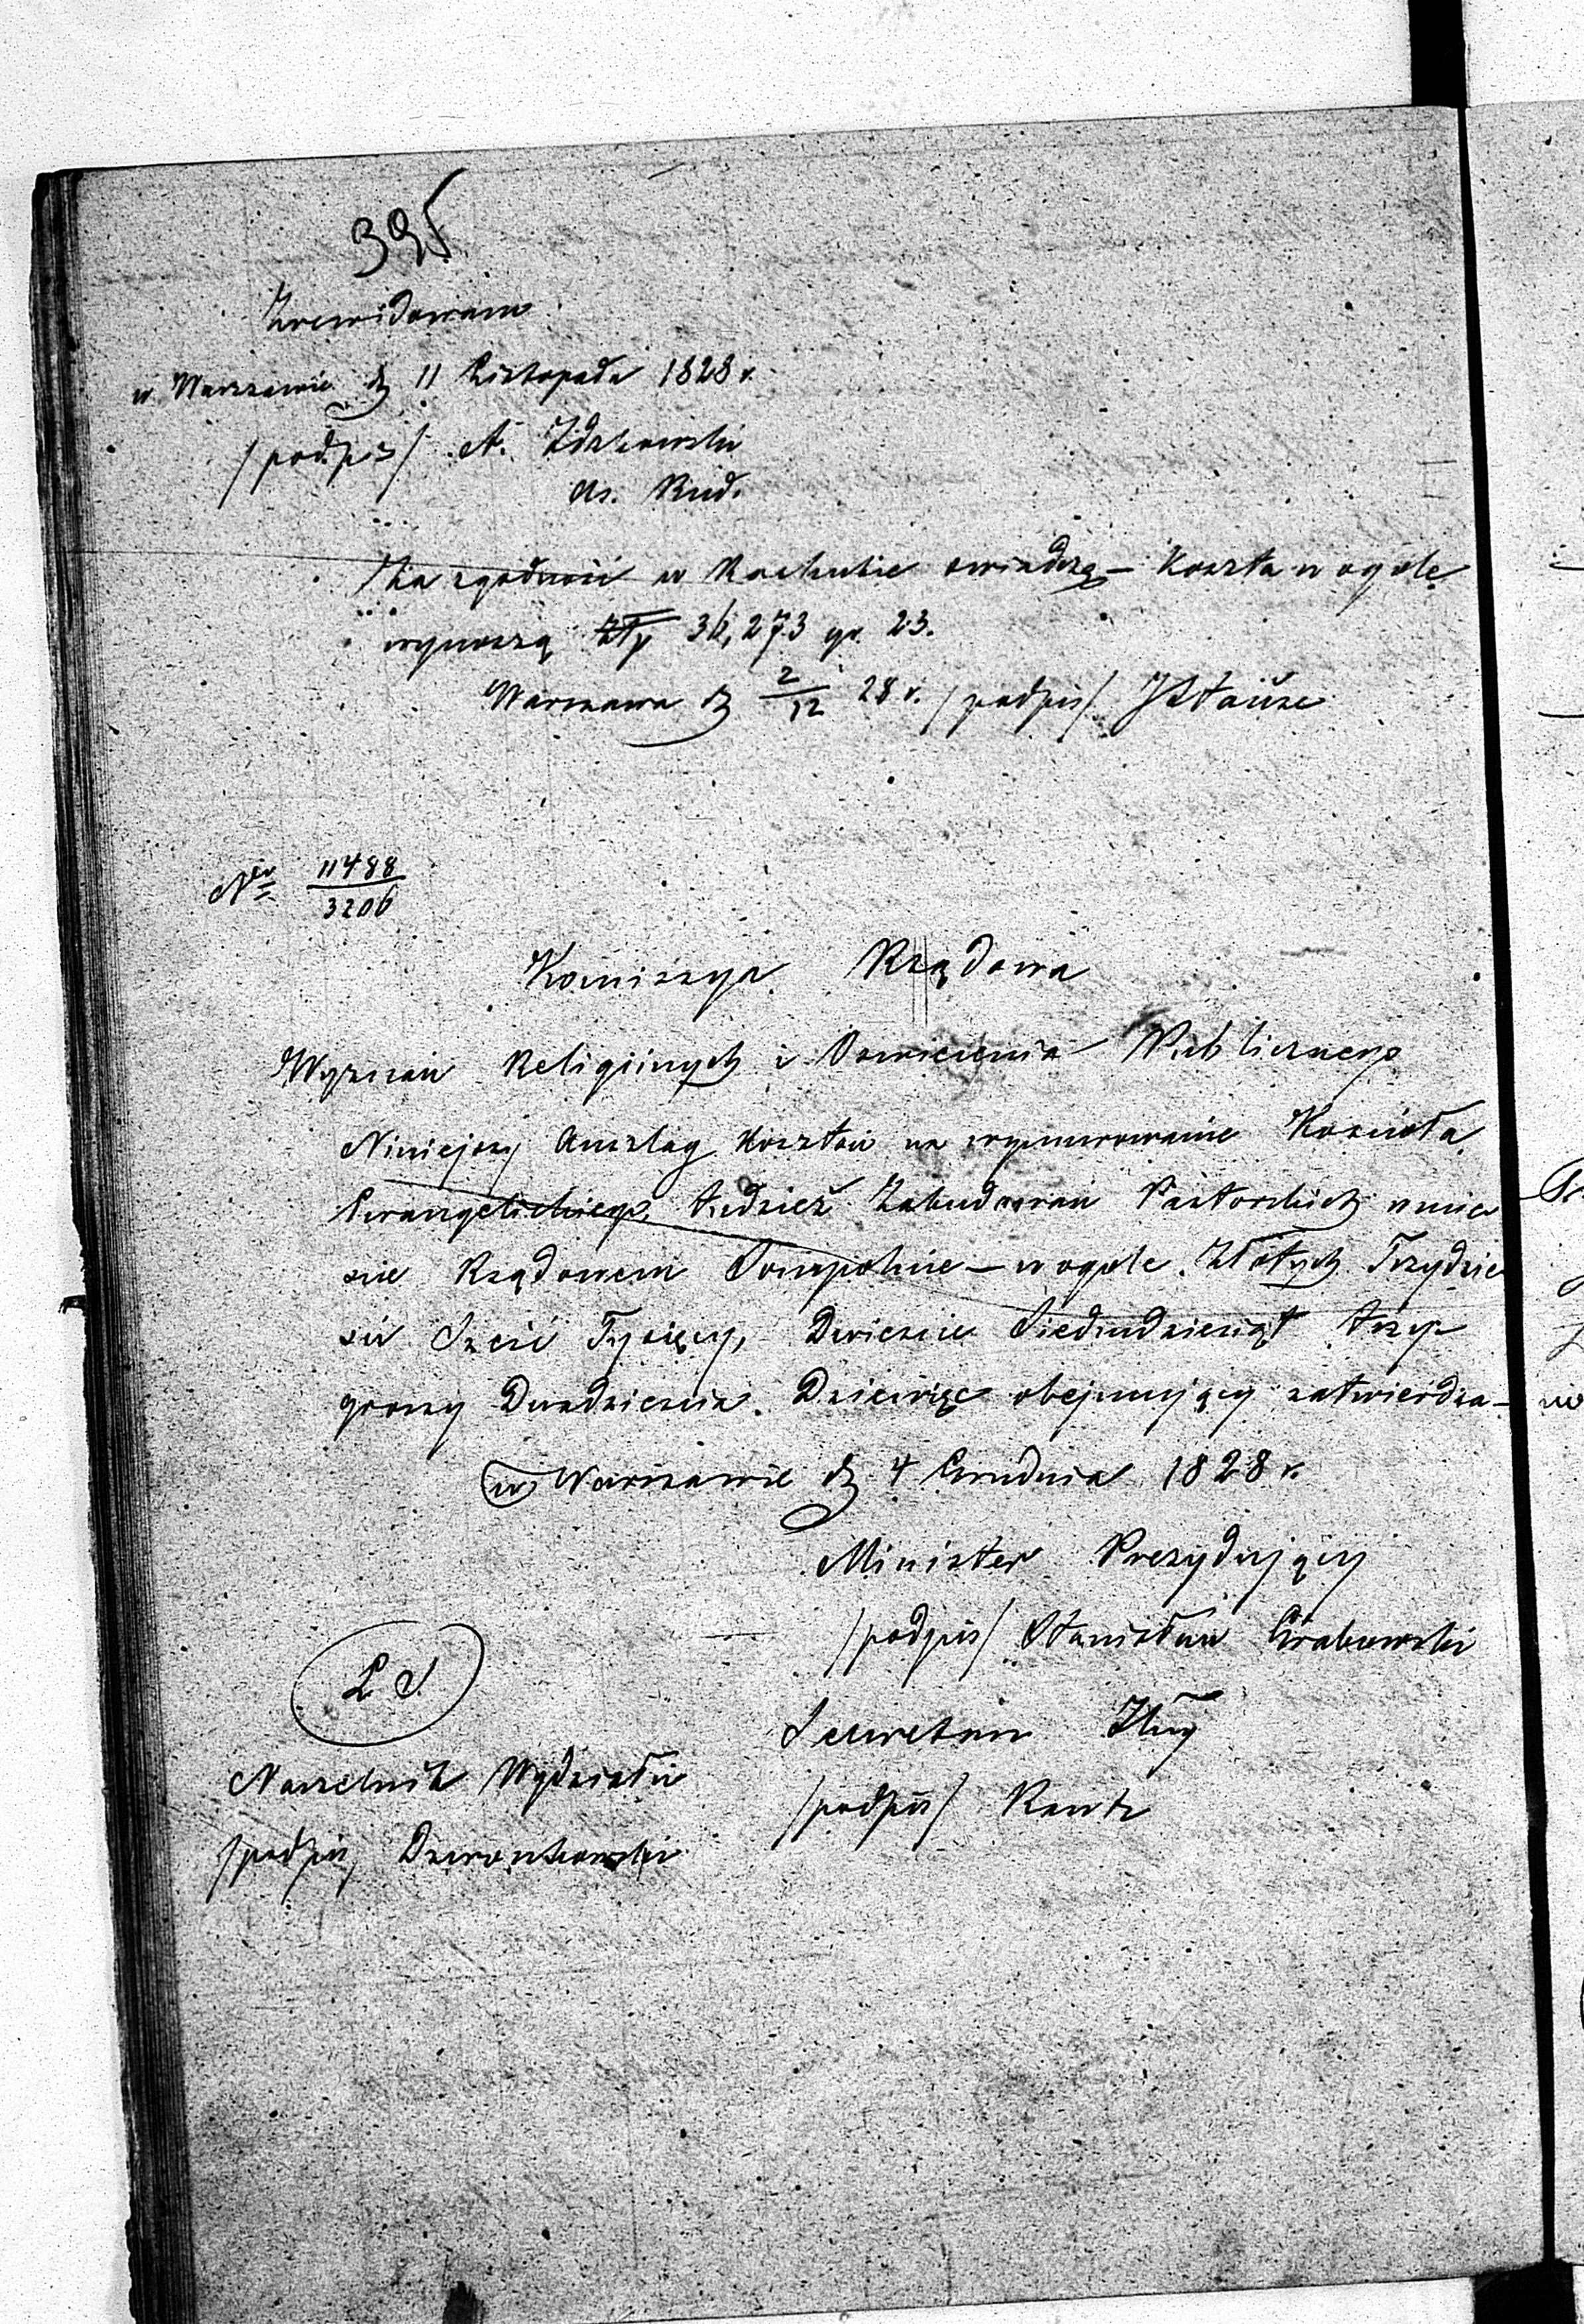 395
Zrewidowano
w Warszawie d 11 Listopada 1828 r.
/podpis/ A. Idzkowski
As. Bud.
Za zgodność w Rachubie swiadczę – koszta w ogóle
wynoszą Złp 36,273 gr. 23.
Warszawa d 2/12 28 r. /podpis/
Nro 11488/3206
Komissya Rządowa
Wyznań Religiinych i Oswiecenia Publicznego
Niniejszy Anszlag kosztów na wymurowanie Kościoła
Ewangelickiego, tudzież Zabudowań Pastorskich w mieś
cie Rządowem Sompolnie – w ogóle Złotych Trzydzie
ści Sześć Tysięcy, Dwieście Siedmdziesiąt trzy
groszy Dwadzieścia Dziewięć obejmujący zatwierdza –
w Warszawie d 4 Grudnia 1828 r.
Minister Prezydujący
/podpis/ Stanisław Grabowski
L. S.
Sekretarz
Naczelnik Wydziału
/podpis/
/podpis/ Dzwonkowski